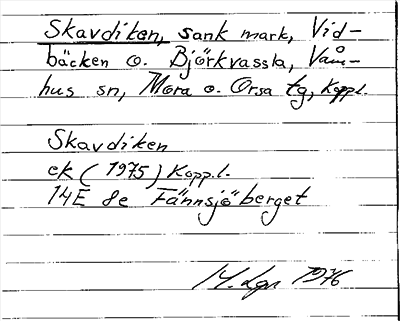 Skavdiken, sank mark, Vid-
bäcken o. Björkvassla, Våm-
hus sn, Mora o. Orsa tg, Koppl.
Skavdiken
ek (1975) Koppl.
14E 8e Fännsjöberget
1976